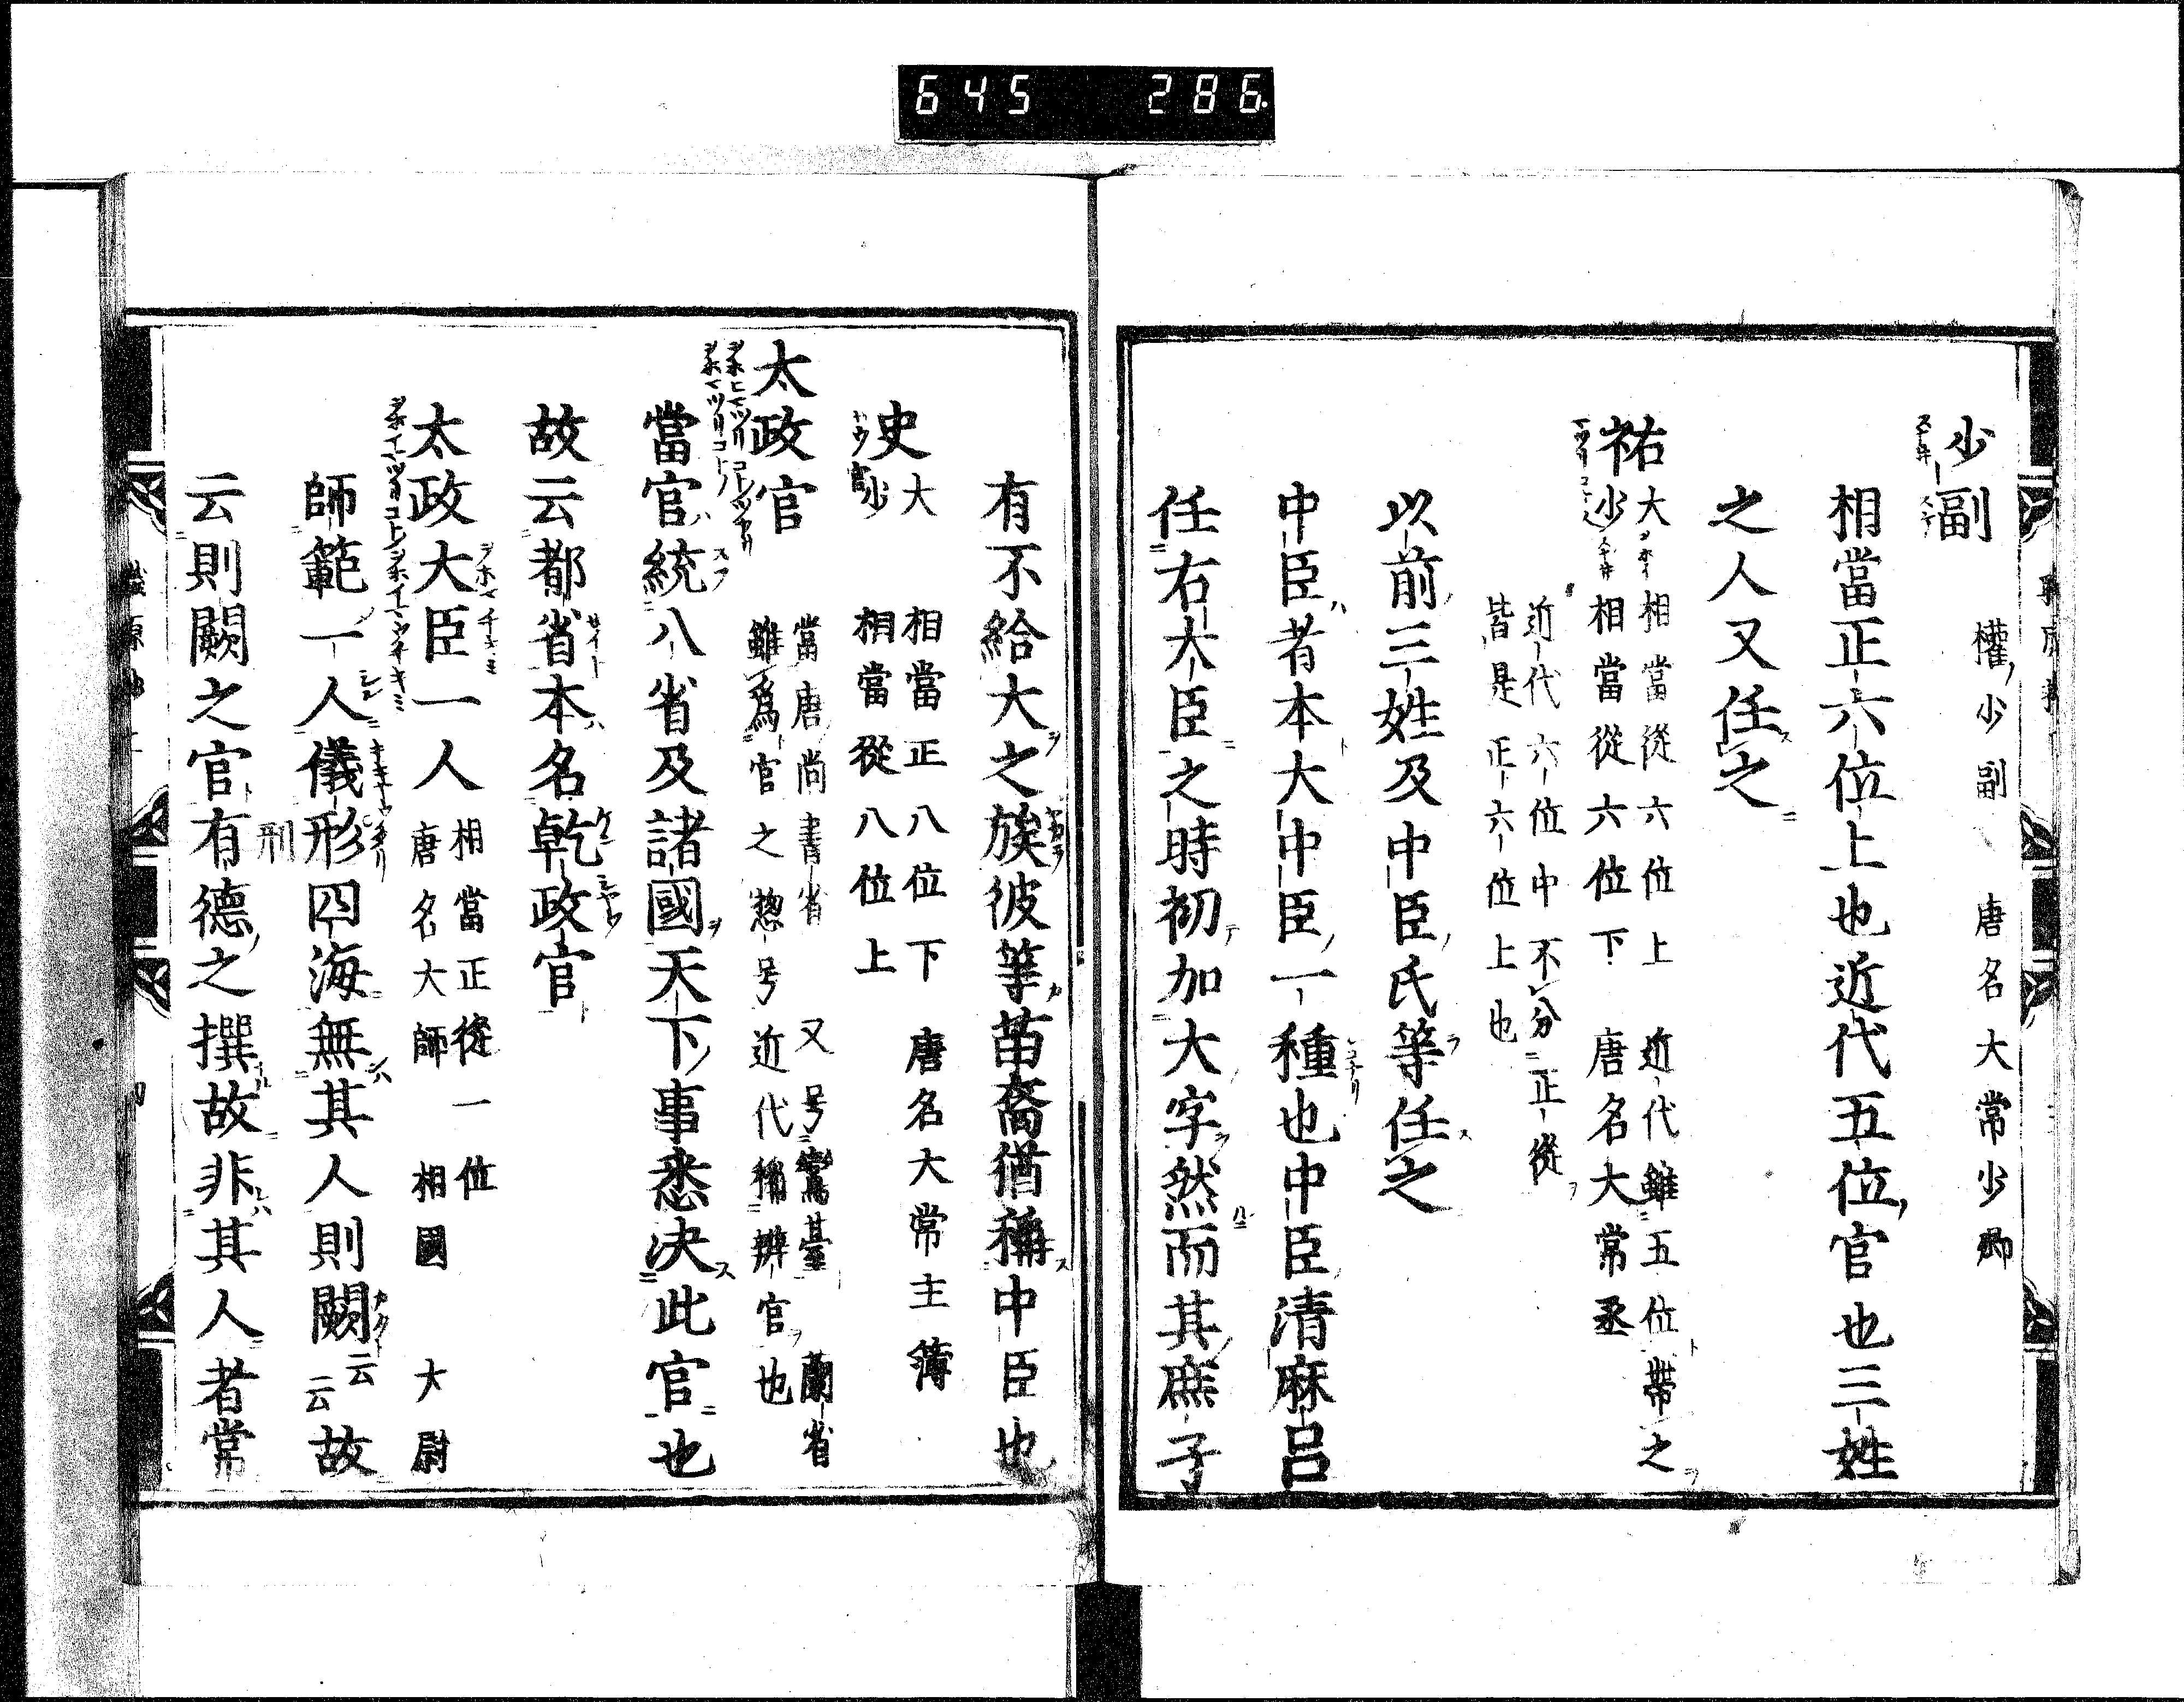 645 286
少副 權少副 唐名大常少卿
相當正六位上也近代五位官也三姓
之人又任之
祐 大 相當從六位上 近代雖五位帶之
少 相當從六位下 唐名大常丞
近代六位中不分正從
皆是正六位上也
以前三姓及中臣氏等任之
中臣者本大中臣一種也中臣清麻呂
任右大臣之時初加大字然而其庶子
有不給大之族彼等苗裔猶稱中臣也
史 大 相當正八位下 唐名大常主簿
少 相當從八位上
太政官 當唐尚書省 又号鸞臺 蘭省
雖爲官之惣号近代稱辨官也
當官統八省及諸國天下事悉決此官也
故云都省本名乾政官
太政大臣一人 相當正從一位
唐名大師 相國 大尉
師範一人儀形四海無其人則闕云云故
刑
云則闕之官有德之撰故非其人者常